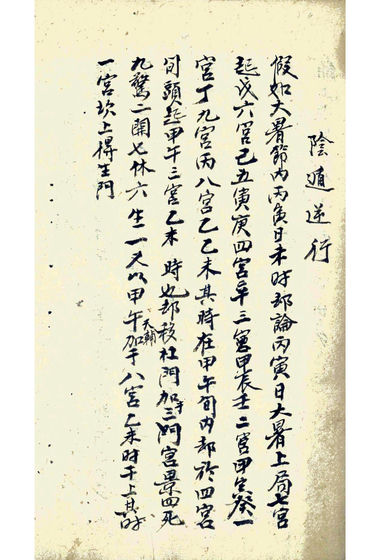 陰遁逆行
假如大暑節內丙寅日未時却論丙寅日大暑上局七宮
起戊六宮己五宮庚四宮辛三宮甲辰壬二宮甲寅癸一
宮丁九宮丙八宮乙乙未其時在甲午旬內却於四宮
旬頭起甲午三宮乙未時也却移杜門加于三門宮景四死
九驚二開七休六生一又以甲午天輔加于八宮乙未時干上其時
一宮坎上得生門